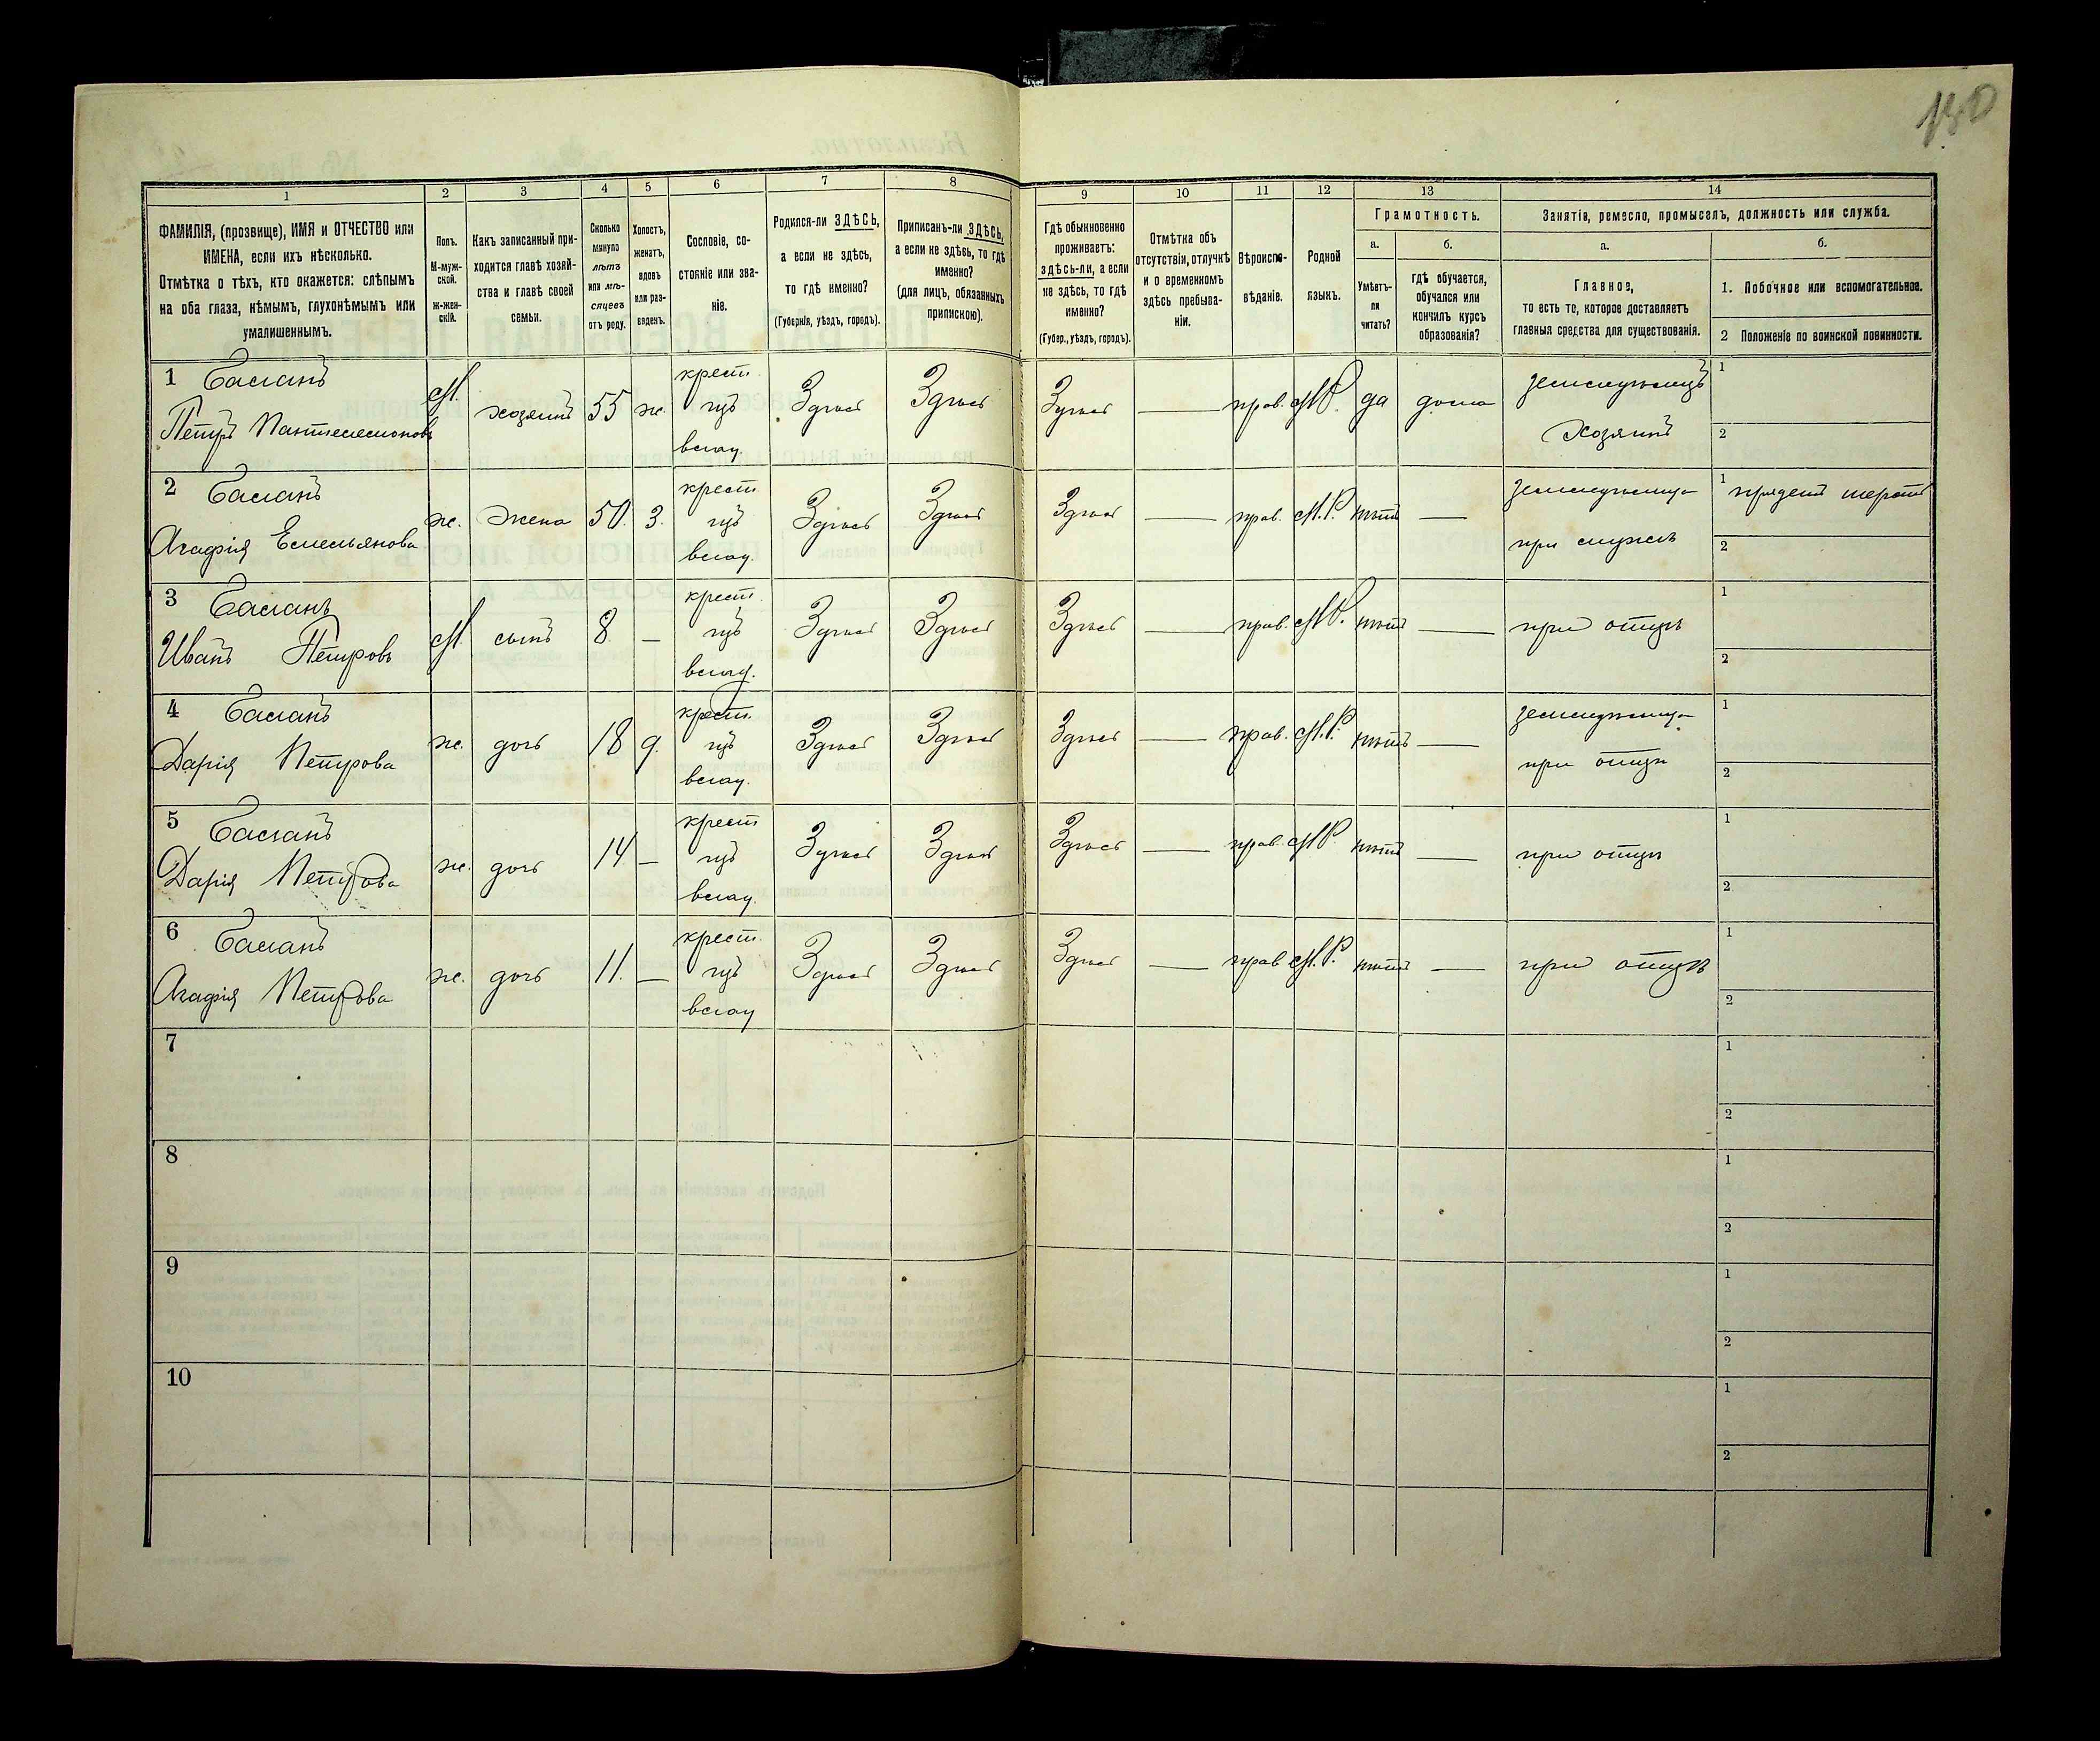 180
1 2 3 4 5 6 7 8 9 10 11 12 13 14
ФАМИЛІЯ, (прозвище), ИМЯ и ОТЧЕСТВО или
ИМЕНА, если ихъ нѣсколько.
Отмѣтка о тѣхъ, кто окажется: слѣпымъ
на оба глаза, нѣмымъ, глухонѣмымъ или
умалишеннымъ.
Полъ.
М-муж-
ской.
ж-жен-
скій.
Какъ записанный при-
ходится главѣ хозяй-
ства и главѣ своей
семьи.
Сколько
минуло
лѣтъ
или мѣ-
сяцевъ
отъ роду.
Холостъ,
женатъ,
вдовъ
или раз-
веденъ.
Сословіе, со-
стояніе или зва-
ніе.
Родился-ли ЗДѢСЬ,
а если не здѣсь,
то гдѣ именно?
(Губернія, уѣздъ, городъ).
Приписанъ-ли ЗДѢСЬ,
а если не здѣсь, то гдѣ
именно?
(для лицъ, обязанныхъ
припискою).
Гдѣ обыкновенно
проживаетъ:
здѣсь-ли, а если
не здѣсь, то гдѣ
именно?
(Губер., уѣздъ, городъ).
Отмѣтка объ
отсутствіи, отлучкѣ
и о временномъ
здѣсь пребыва-
ніи.
Вѣроиспо-
вѣданіе.
Родной
языкъ.
Грамотность.
а.
Умѣетъ-
ли
читать?
б.
гдѣ обучается,
обучался или
кончилъ курсъ
образованія?
Занятіе, ремесло, промыселъ, должность или служба.
а.
Главное,
то есть то, которое доставляетъ
главныя средства для существованія.
б.
1. Побочное или вспомогательное.
2 Положеніе по воинской повинности.
1 Басанъ
Петръ Пантелеймоновъ
М. хозяинъ 55 ж.
крест.
изъ
влад.
Здѣсь Здѣсь Здѣсь — прав. М.Р. да дома
земледѣлецъ
Хозяинъ
1
2
2 Басанъ
Агафія Емельянова
ж. жена 50. З.
крест.
изъ
влад.
Здѣсь Здѣсь Здѣсь — прав. М.Р. нѣтъ —
земледѣлица
при мужѣ
1 прядетъ шерсть
2
3 Басанъ
Иванъ Петровъ
М сынъ 8. —
крест.
изъ
влад.
Здѣсь Здѣсь Здѣсь — прав. М.Р. нѣтъ — при отцѣ
1
2
4 Басанъ
Дарія Петрова
ж. дочь 18 д.
крест.
изъ
влад.
Здѣсь Здѣсь Здѣсь — прав. М.Р. нѣтъ —
земледѣлица
при отцѣ
1
2
5 Басанъ
Дарія Петрова
ж. дочь 14 —
крест
изъ
влад.
Здѣсь Здѣсь Здѣсь — прав. М.Р. нѣтъ — при отцѣ
1
2
6 Басанъ
Агафія Петрова
ж. дочь 11. —
крест.
изъ
влад
Здѣсь Здѣсь Здѣсь — прав М.Р. нѣтъ — при отцѣ
1
2
7
1
2
8
1
2
9
1
2
10
1
2